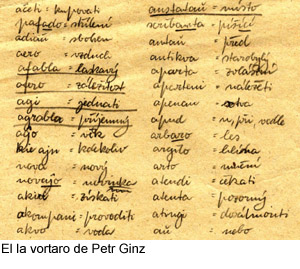 aĉeti = kupovati
pafado = střílení
adiaŭ = sbohem
aero = vzduch
afabla = laskavý
afero = záležitost
agi = jednati
agrabla = příjemný
aĝo = věk
kie ajn = kdekoliv
nova = nový
novaĵo = novinka
akiri = získati
akompani = provoditi
akvo = voda
anstataŭ = místo
skribanta = píšící
antaŭ = před
antikva = starobylý
aparta = zvláštní
aparteni = náležeti
apenaŭ = sotva
apud = u, při, vedle
arbaro = les
argilo = hlína
arto = umění
atendi = čekati
atenta = pozorný
atingi =
aŭ = nebo
El la vortaro de Petr Ginz